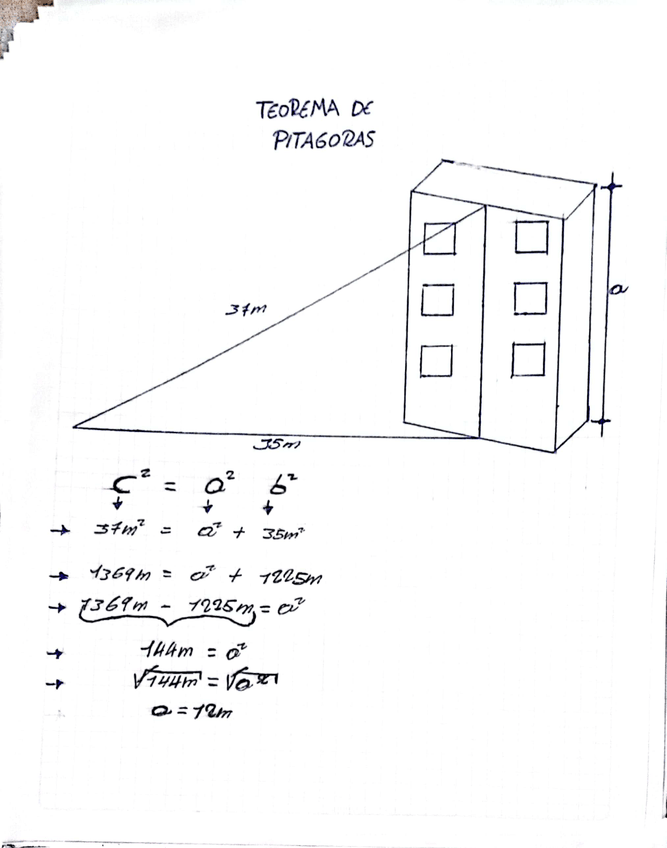 TEOREMA DE
PITAGORAS
a
37m
35m
c² = a² b²
→ 37m² = a² + 35m²
→ 1369m = a² + 1225m
→ 1369m - 1225m = a²
→ 144m = a²
→ √144m = √a²
a = 12m